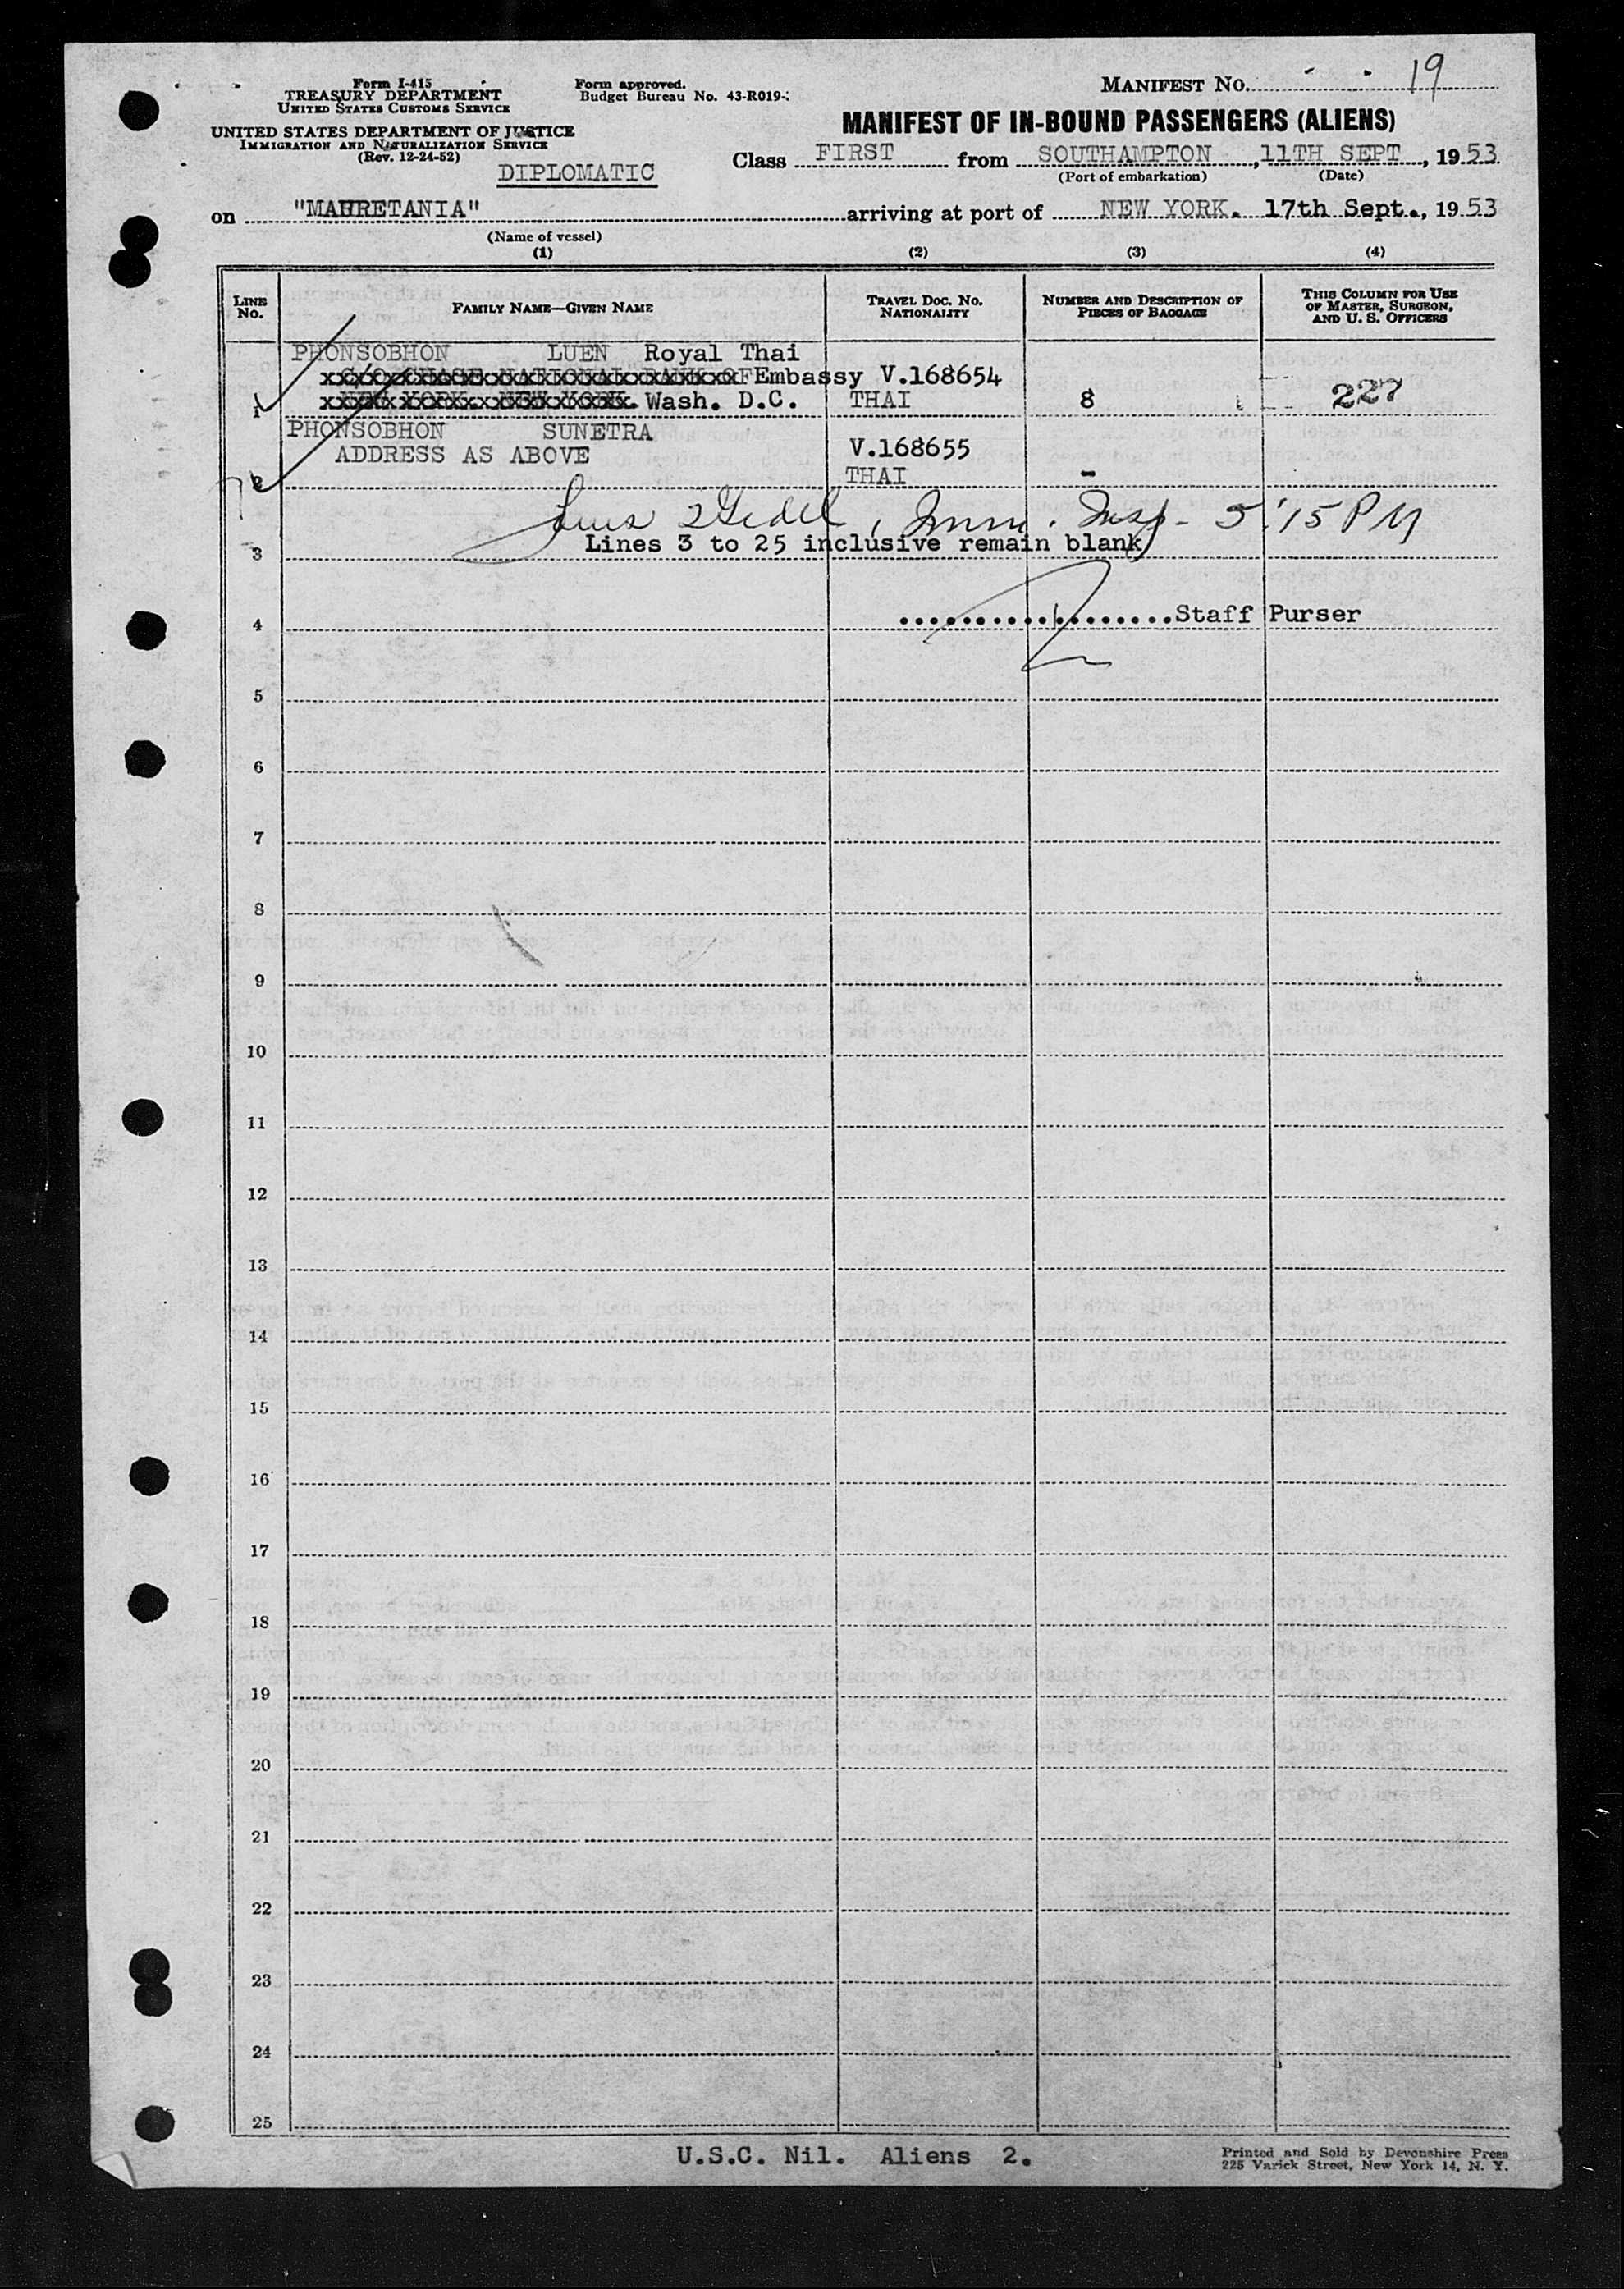 Form I-415
TREASURY DEPARTMENT
UNITED STATES CUSTOMS SERVICE
Form approved.
Budget Bureau No. 43-R019-
MANIFEST NO. 19
UNITED STATES DEPARTMENT OF JUSTICE
IMMIGRATION AND NATURALIZATION SERVICE
(Rev. 12-24-52)
DIPLOMATIC
MANIFEST OF IN-BOUND PASSENGERS (ALIENS)
Class FIRST from SOUTHAMPTON, 11TH SEPT, 1953
(Port of embarkation) (Date)
on "MAURETANIA" arriving at port of NEW YORK. 17th Sept., 1953
(Name of vessel)
(1) (2) (3) (4)
LINE No.
FAMILY NAME—GIVEN NAME
TRAVEL DOC. NO. NATIONALITY
NUMBER AND DESCRIPTION OF PIECES OF BAGGAGE
THIS COLUMN FOR USE OF MASTER, SURGEON, AND U. S. OFFICERS
PHONSOBHON LUEN Royal Thai
C/O CHASE NATIONAL BANK OF Embassy V.168654
1 NEW YORK. NEW YORK. Wash. D.C. THAI 8 227
PHONSOBHON SUNETRA
ADDRESS AS ABOVE V.168655
2 THAI -
Imm. Insp. 5:15 PM
3 Lines 3 to 25 inclusive remain blank
4 ..................Staff Purser
5
6
7
8
9
10
11
12
13
14
15
16
17
18
19
20
21
22
23
24
25
U.S.C. Nil. Aliens 2.
Printed and Sold by Devonshire Press
225 Varick Street, New York 14, N. Y.